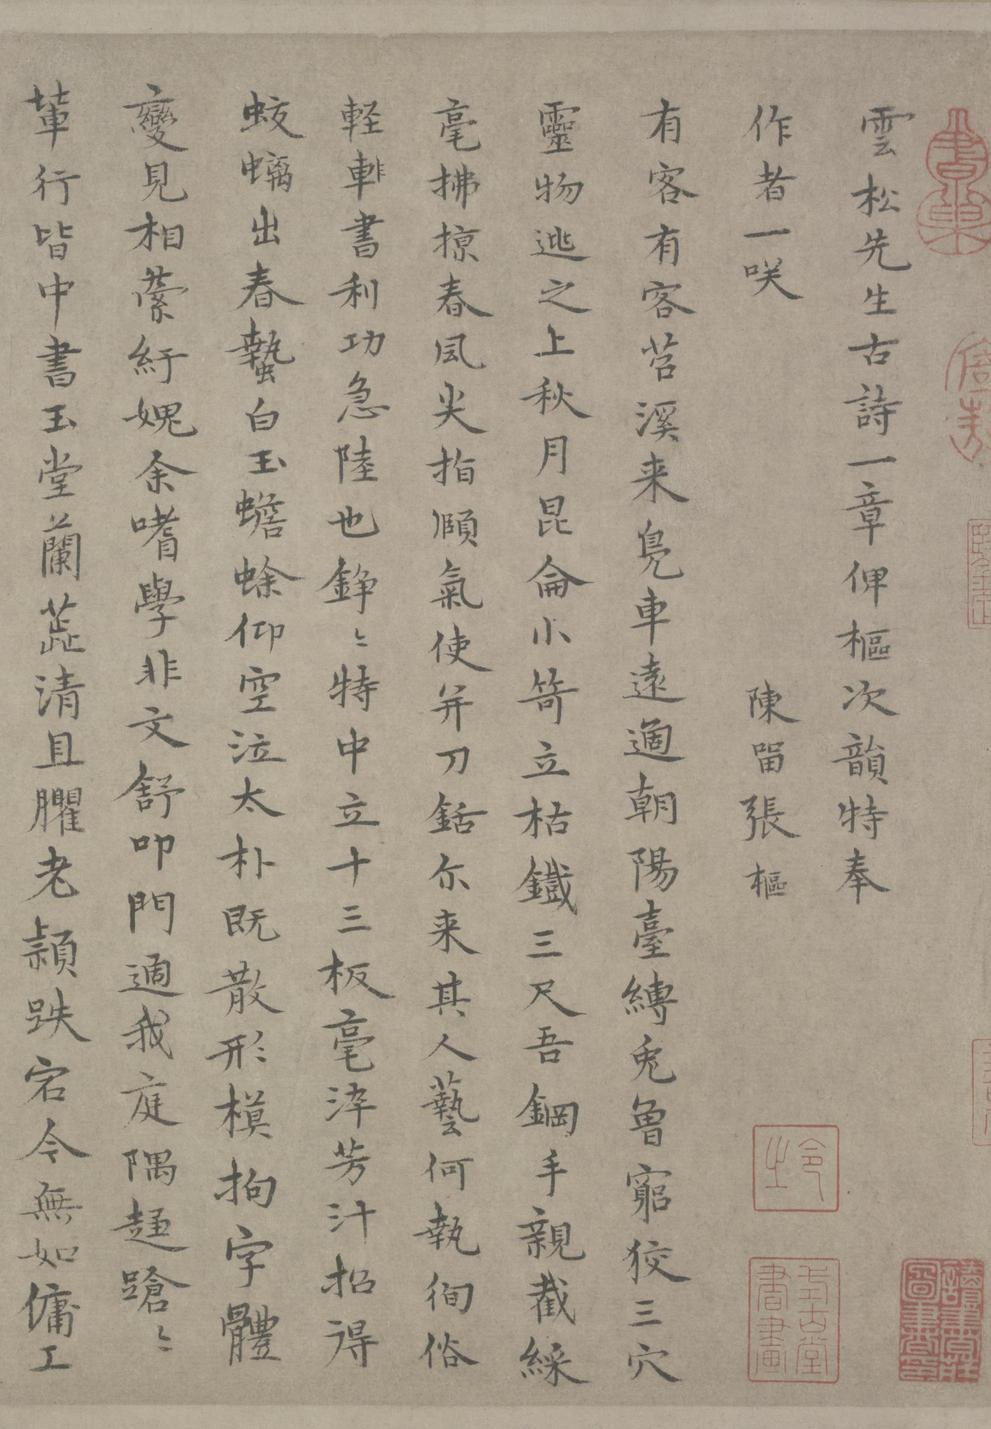 雲松先生古詩一章俾樞次韻特奉
作者一咲
陳留張樞
有客有客苕溪来鳧車遠適朝陽臺縛兎魯窮狡三穴
靈物逃之上秋月昆侖小笴立枯鐵三尺吾鋼手親截綵
毫拂掠春風尖指頋氣使并刀銛尓来其人藝何執徇俗
軽軰書利功急陸也錚〻特中立十三板毫淬芳汁招得
蛟螭出春蟄白玉蟾蜍仰空泣太朴既散形模拘字體
變見相縈紆媿余嗜學非文舒叩門適我庭隅趨蹌〻
軰行皆中書玉堂蘭茝清且臞老穎跌宕今無如傭工